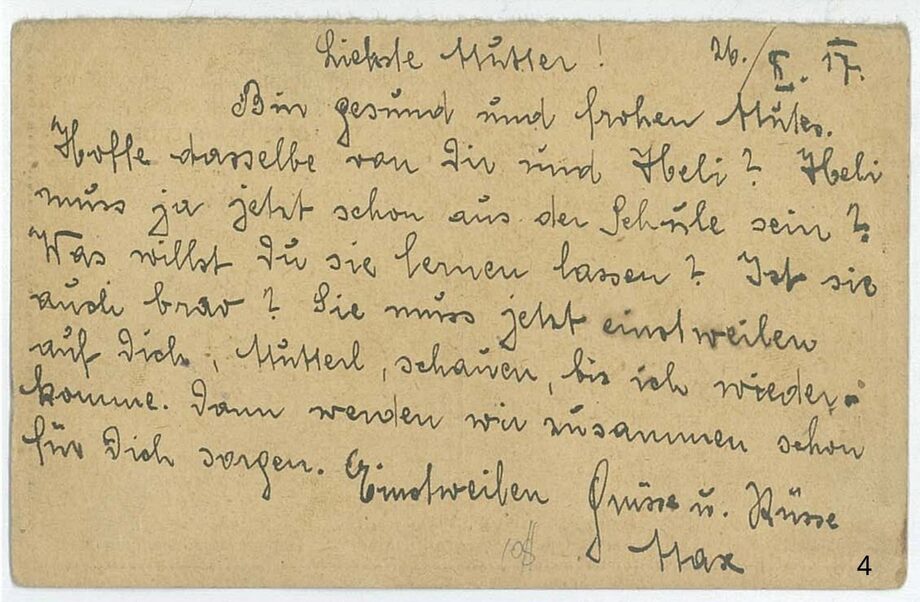 Liebste Mutter! 26./X. 17.
Bin gesund und frohen Mutes.
Hoffe dasselbe von Dir und Heli? Heli
muss ja jetzt schon aus der Schule sein?
Was willst Du sie lernen lassen? Ist sie
auch brav? Sie muss jetzt einstweilen
auf Dich, Mutterl, schauen, bis ich wieder-
komme. Dann werden wir zusammen schon
für Dich sorgen. Einstweilen Grüsse u. Küsse
Max
10$
4